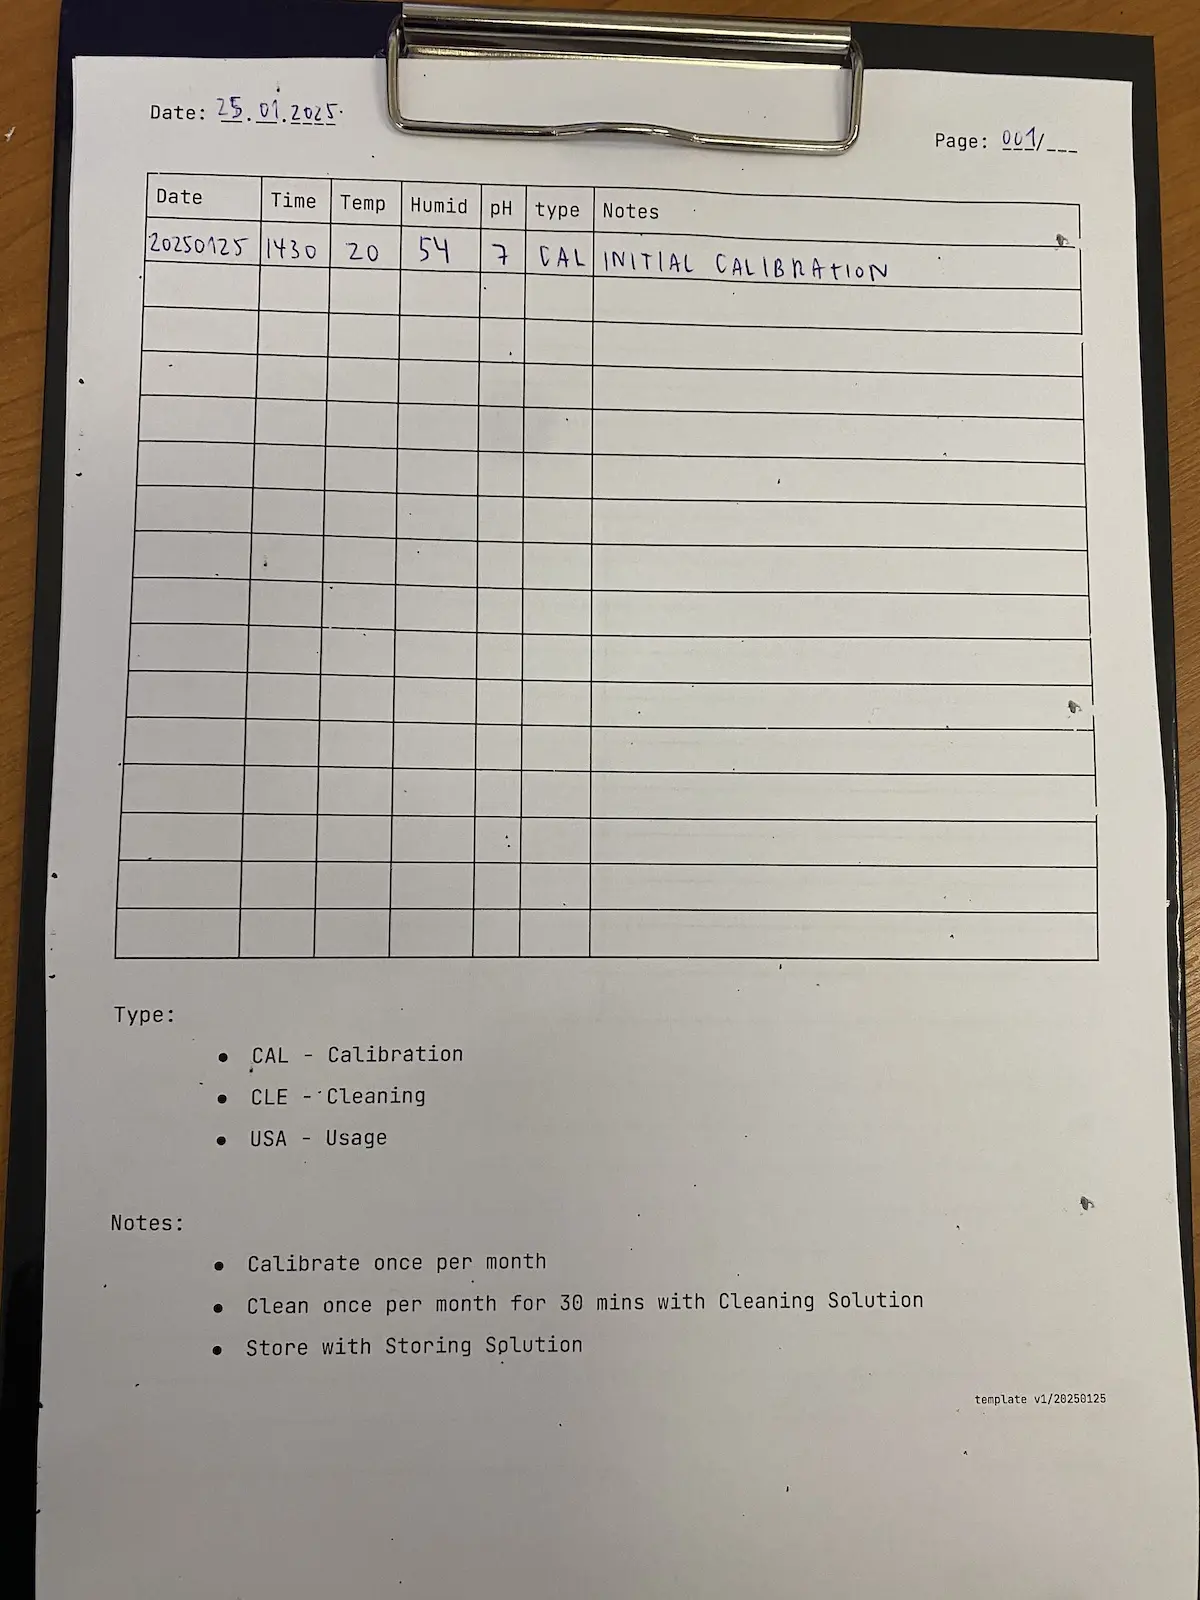 Date: 25.01.2025.
Page: 001/___
Date Time Temp Humid pH type Notes
20250125 1430 20 54 7 CAL INITIAL CALIBRATION
Type:
• CAL - Calibration
• CLE - Cleaning
• USA - Usage
Notes:
• Calibrate once per month
• Clean once per month for 30 mins with Cleaning Solution
• Store with Storing Solution
template v1/20250125